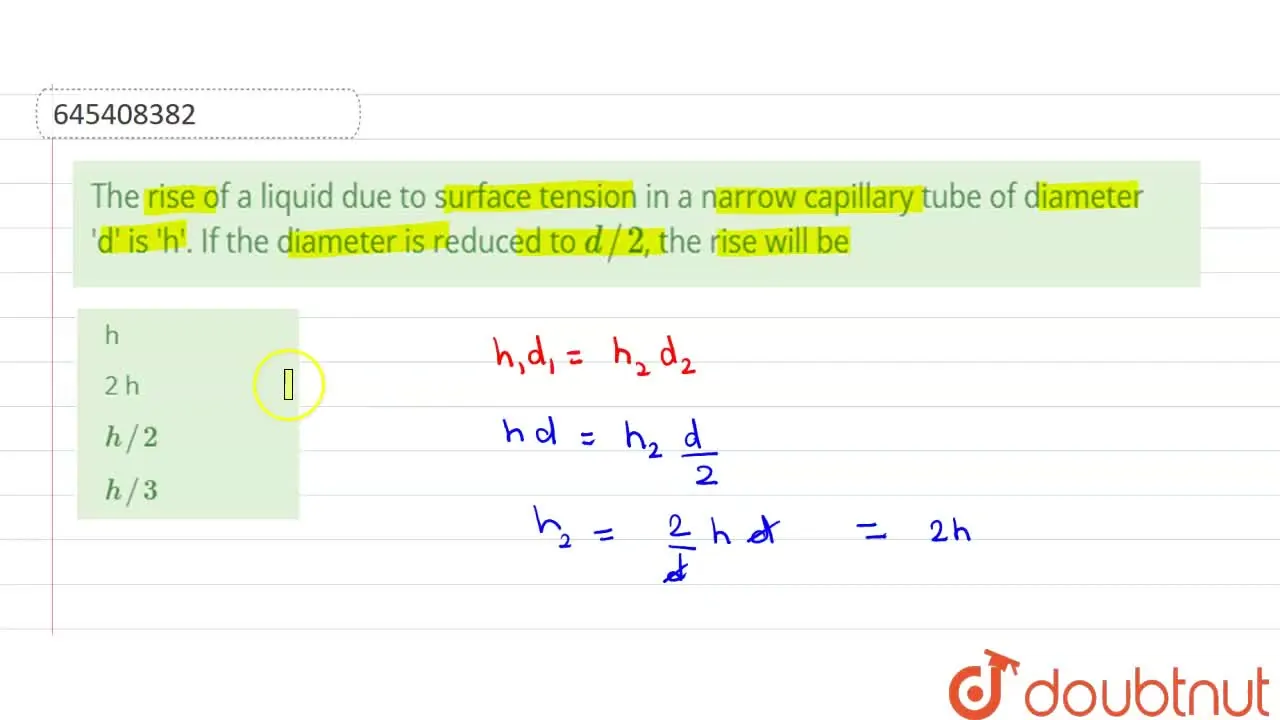 645408382
The rise of a liquid due to surface tension in a narrow capillary tube of diameter
'd' is 'h'. If the diameter is reduced to d/2, the rise will be
h
2 h
h/2
h/3
h₁d₁ = h₂ d₂
h d = h₂ d/2
h₂ = 2/d h d = 2h
doubtnut